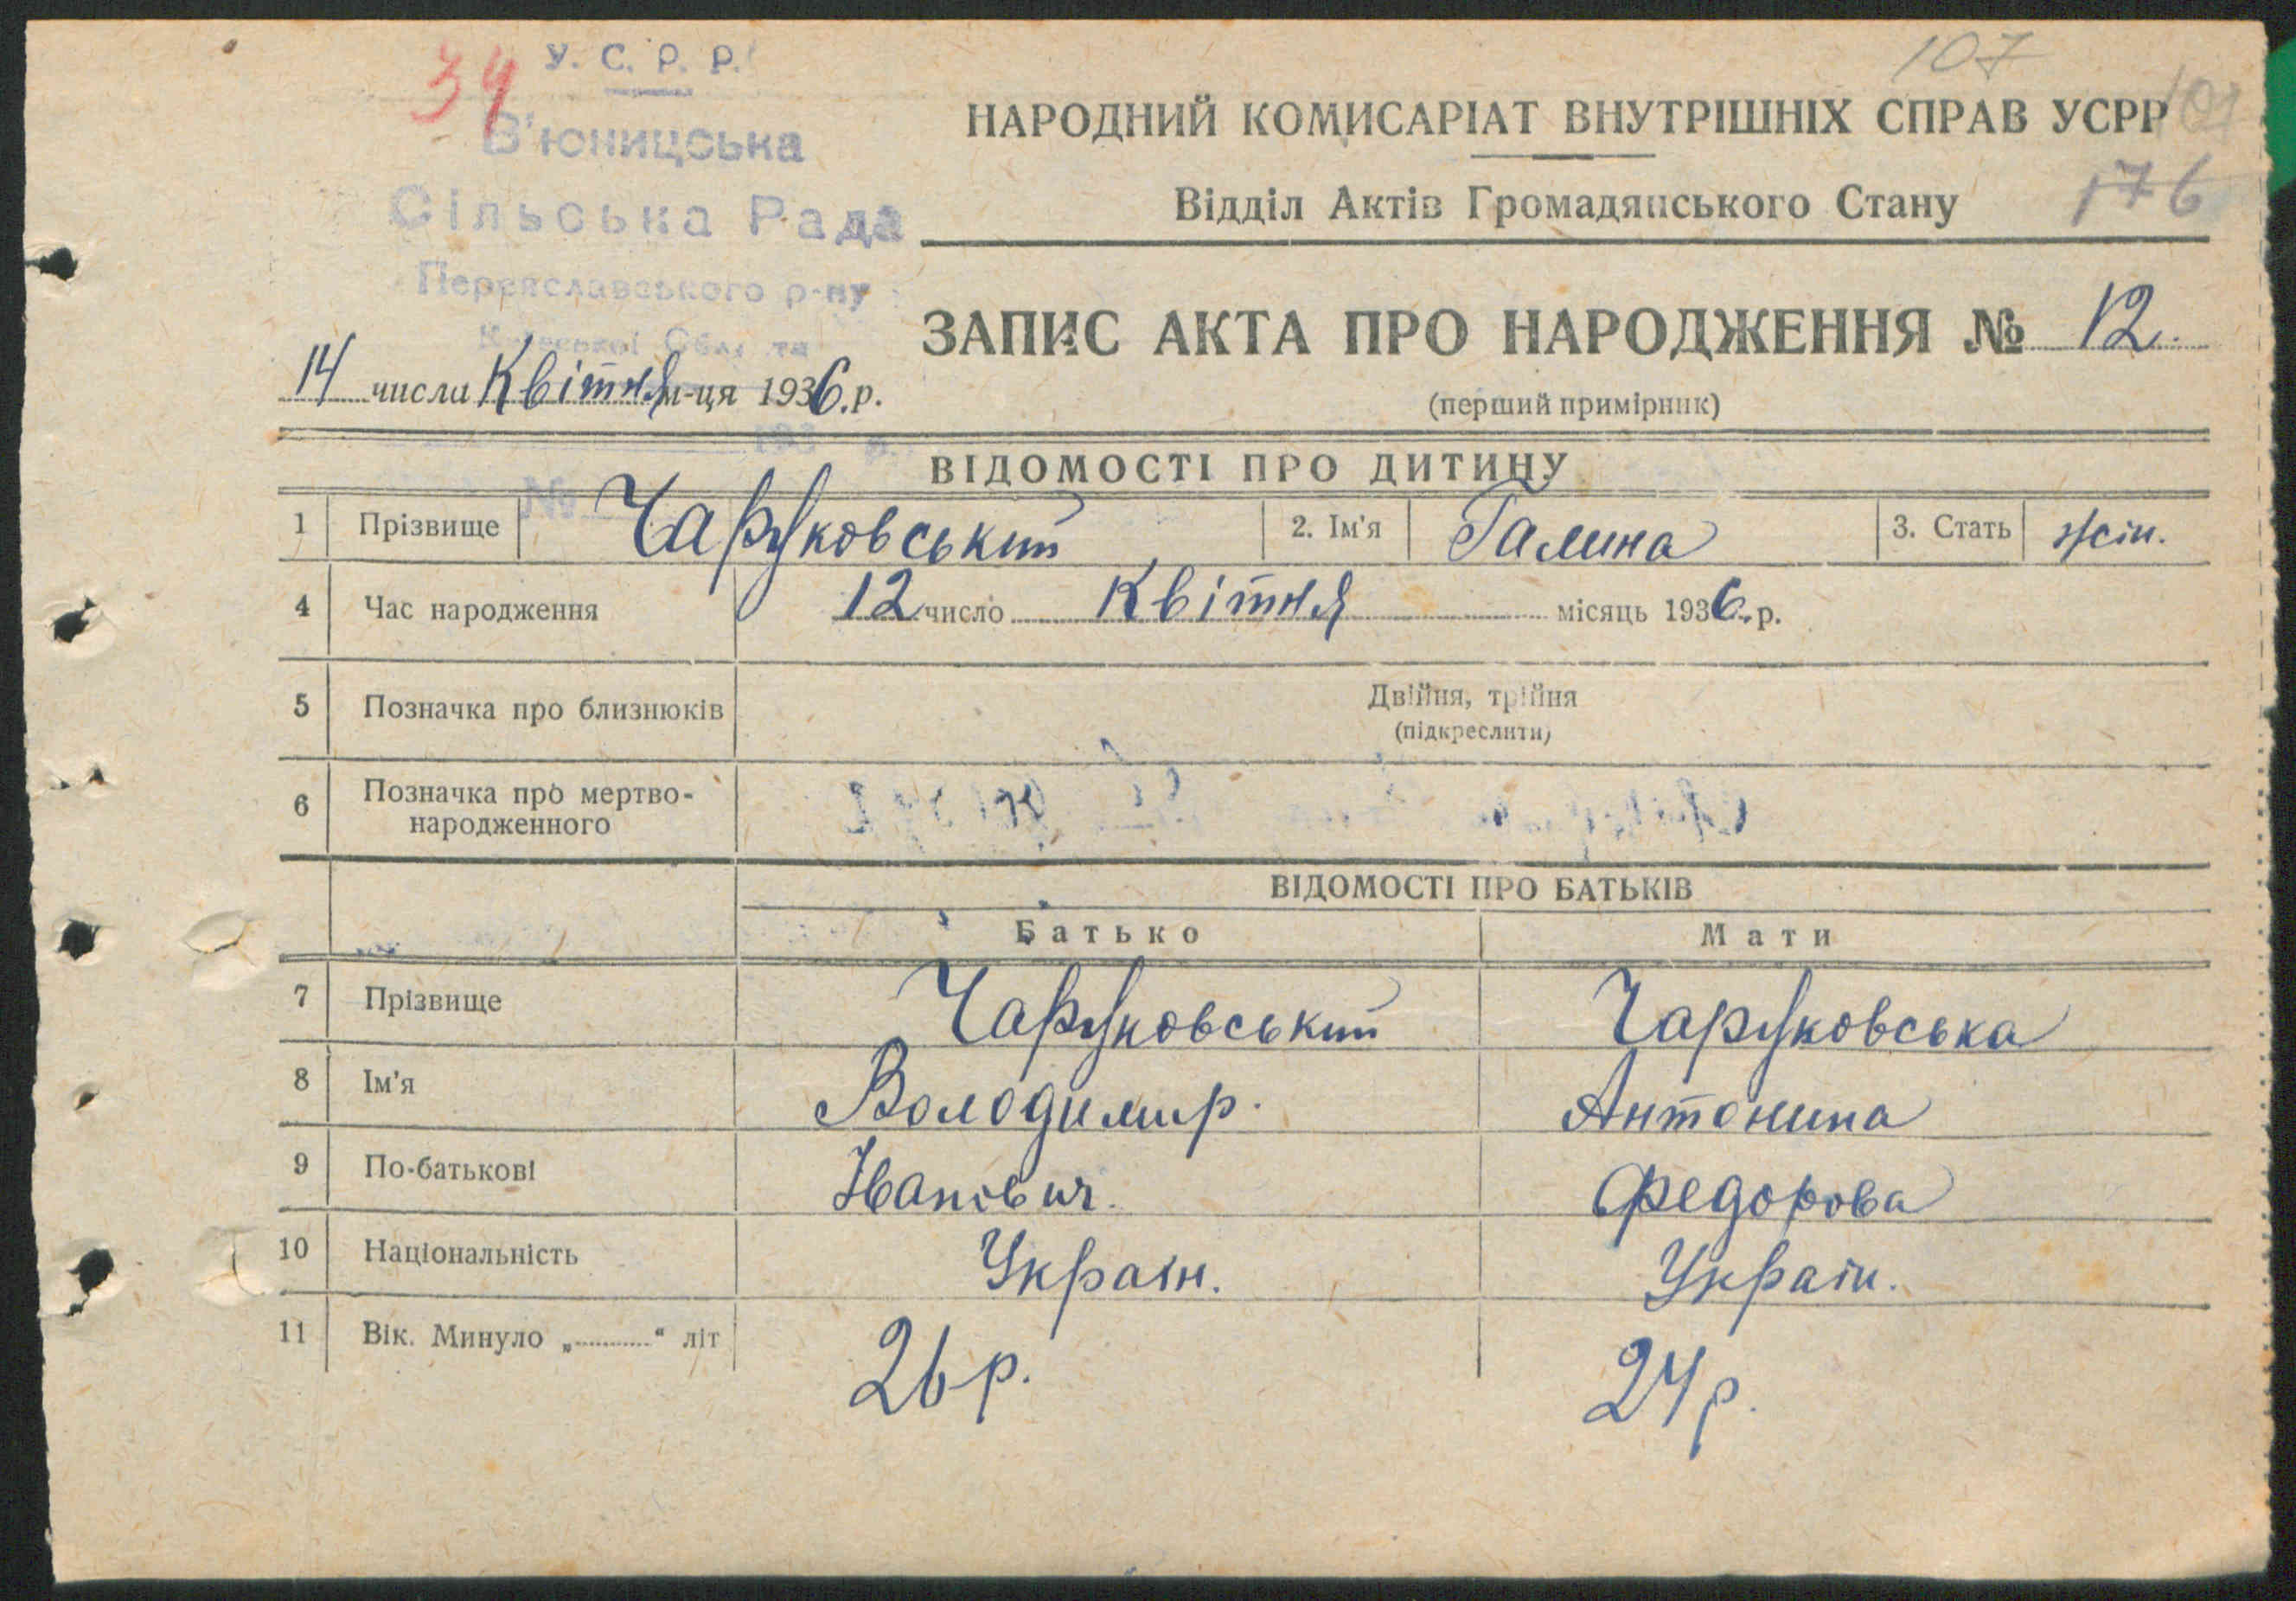 34 У. С. Р. Р. 107
В'юницська
НАРОДНИЙ КОМИСАРІАТ ВНУТРІШНІХ СПРАВ УСРР
Сільська Рада
Відділ Актів Громадянського Стану 176
Переяславського р-ну
ЗАПИС АКТА ПРО НАРОДЖЕННЯ № 12.
14 числа Квітня м-ця 1936.р.
(перший примірник)
193 р.
ВІДОМОСТІ ПРО ДИТИНУ
№
1 Прізвище Чаруковський 2. Ім'я Галина 3. Стать жін.
4 Час народження 12 число Квітня місяць 1936.р.
5 Позначка про близнюків Двійня, трійня
(підкреслити)
6 Позначка про мертво-
народженного
ВІДОМОСТІ ПРО БАТЬКІВ
Батько Мати
7 Прізвище Чаруковський Чаруковська
8 Ім'я Володимир. Антонина
9 По-батькові Іванович. Федорова
10 Національність Україн. Україн.
11 Вік. Минуло „ “ літ 26 р. 24 р.